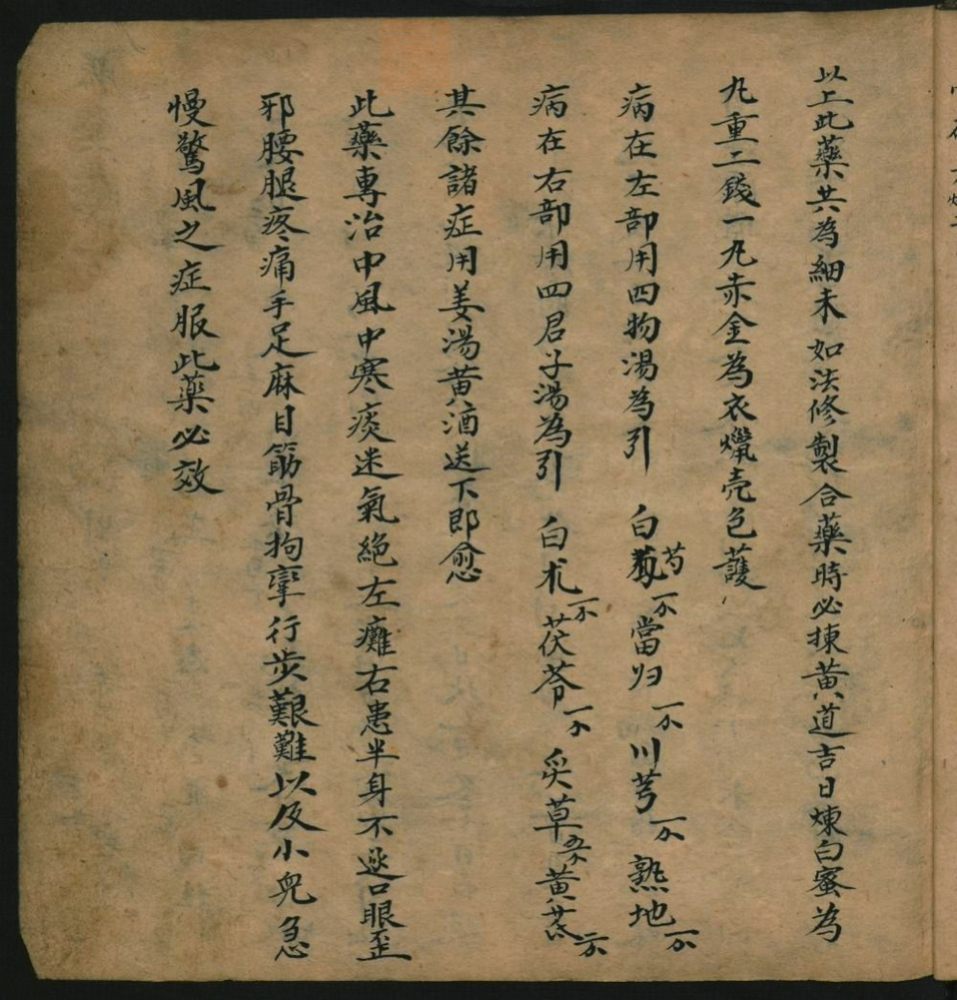 以上此藥共為細末如法修製合藥時必揀黄道吉日煉白蜜為
丸重二錢一丸赤金為衣爦壳包護
病在左部用四物湯為引 白芍一分當归一分川芎一分熟地一分
病在右部用四君子湯為引 白朮一分茯苓一分炙草五分黄芪二分
其餘諸症用姜湯黄酒送下即愈
此藥專治中風中寒痰迷氣絶左癱右患半身不遂口眼歪
邪腰腿疼痛手足麻目筋骨拘孿行步艱難以及小兒急
慢驚風之症服此藥必效